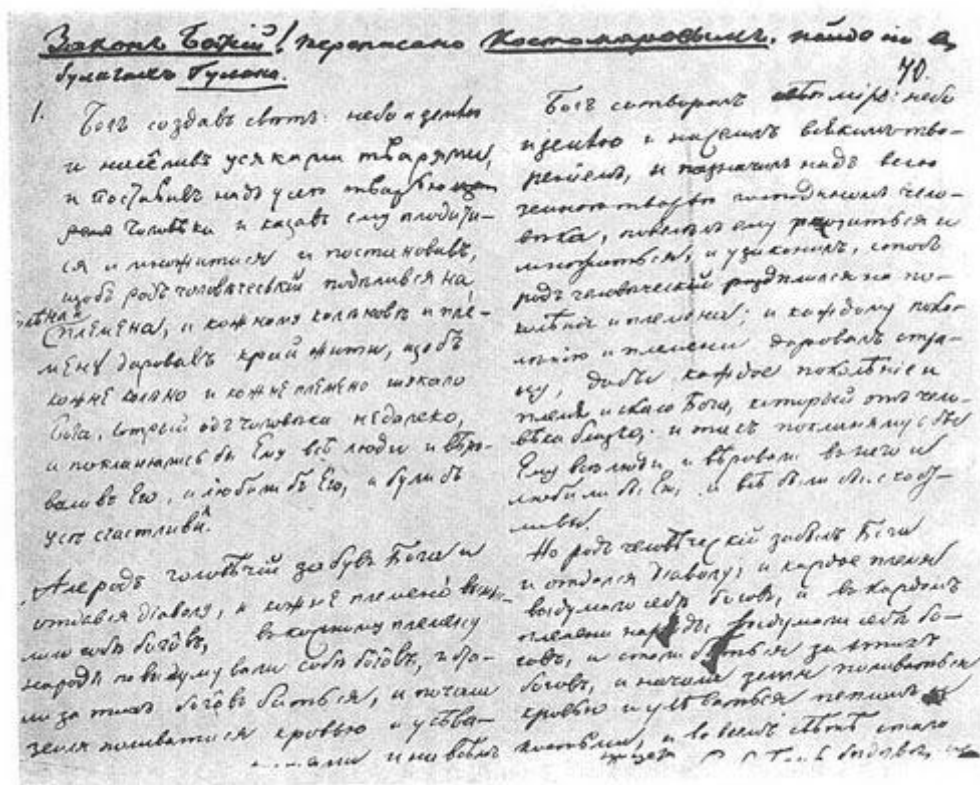 Законъ Божій! переписано Костомаровымъ, найдено въ
бумагахъ Гулака.
70.
1.
Богъ создавъ свѣтъ: небо и землю
и населивъ усяками тварями,
и поставивъ надъ усею тварью
чоловѣка и казавъ ему плодити-
ся и множитися и постановивъ,
щобъ родъ чоловѣческій подѣлився на
племена, и кожному колѣновѣ и пле-
мену даровавъ край жити, щобъ
кожне колѣно и кожне племено шукало
Бога, котрый одъ чоловѣка недалеко,
и покланялись бы Ему всѣ люди и вѣро-
вали въ Его, и любили бъ Его, и були бъ
усѣ счастливи.
Але родъ чоловѣчій забувъ Бога и
отдався діаволу, а кожне племено
собѣ богôвъ,
въ кожному племену
народы повыдумували собѣ богôвъ, и
за тихъ богôвъ биться, и почала
земля поливатися кровью и усѣва-
и на всѣмъ
Богъ сотворилъ міръ: небо
и землю и населилъ всякимъ тво-
реніемъ, и назначилъ надъ всею
земною тварью господиномъ чело-
вѣка, повелѣлъ ему плодиться и
множиться, и узаконилъ, чтобъ
родъ человѣческій раздѣлился на по-
колѣнія и племена; и каждому поко-
лѣнію и племени даровалъ стра-
ну, дабы каждое поколѣніе и
племя искало Бога, который отъ чело-
вѣка близко, и покланялись бы
Ему всѣ люди, и вѣровали въ него и
любили бы Его, и всѣ были бы счаст-
ливы.
Но родъ человѣческій забылъ Бога
и отдался діаволу; и каждое племя
выдумало себѣ боговъ, и въ каждомъ
племени народы выдумали себѣ бо-
говъ, и стали биться за этихъ
боговъ, и начала земля поливаться
кровью и усѣваться пепломъ и
костьми, и во всемъ свѣтѣ стало